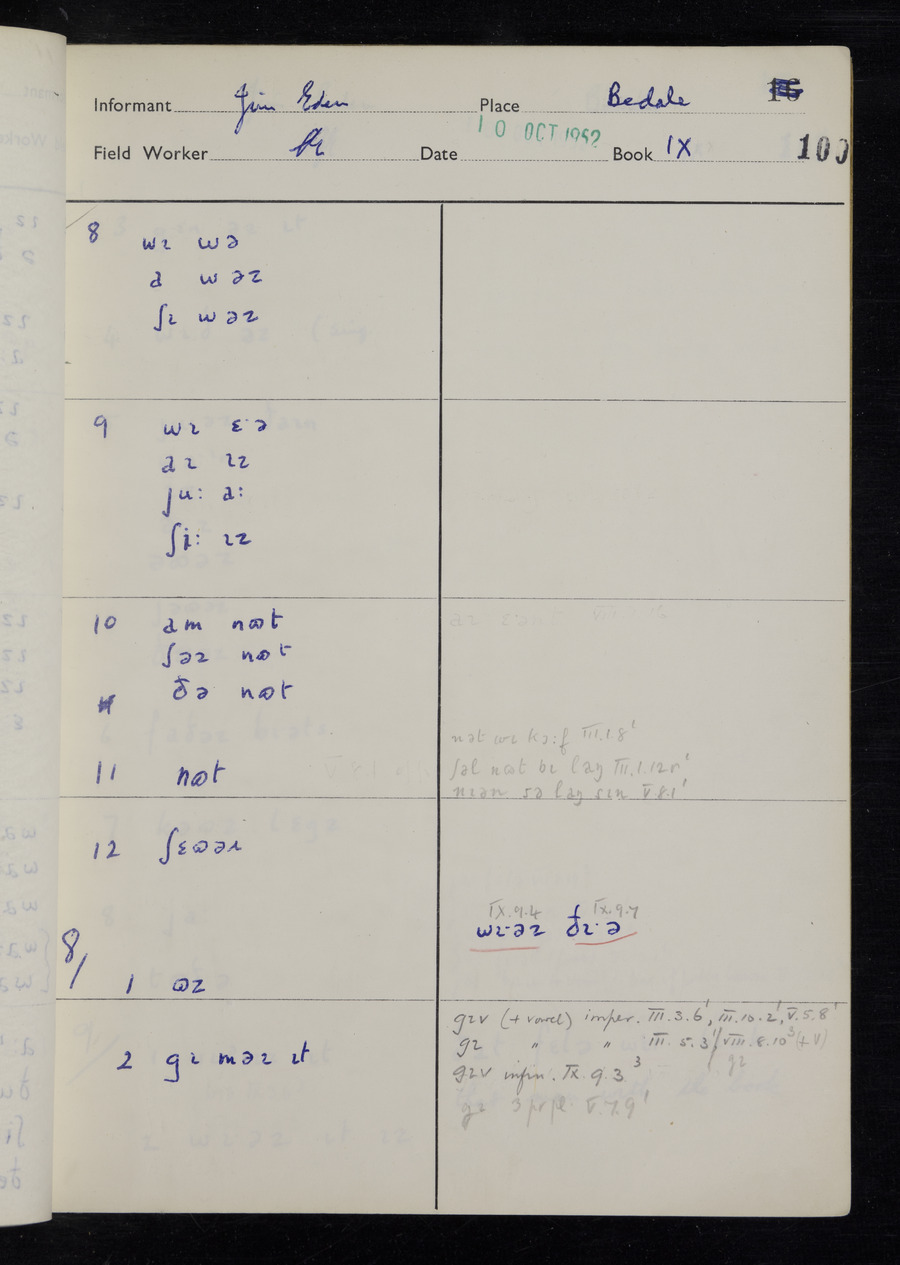 Informant Jim Eden Place Bedale
10 OCT 1952
Field Worker Date Book IX 100
8 wɪ wə
a wəz
ʃɪ wəz
9 wɪ ɛ·ə
aɪ ɪz
ju: a:
ʃi: ɪz
10 am nɷt
ʃəz nɷt
ðə nɷt
11 nɷt
nət wɪ ka:f III.1.8'
ʃəl nɷt bɪ laŋ III.1.12r'
sə laŋ sɪn V.8.1'
12 ʃɛɷəɹ
IX.9.4 IX.9.7
wɪ·əz ðɪ·ə
8/
1 ɷz
2 gɪ məɪ ɪt
gɪv (+ vowel) imper. III.3.6', III.10.2', V.5.8'
gɪ " " III.5.3'/VIII.8.10³ (+V)
gɪ
gɪv infin. IX.9.3³
gɪ 3 pr pl. V.7.9'